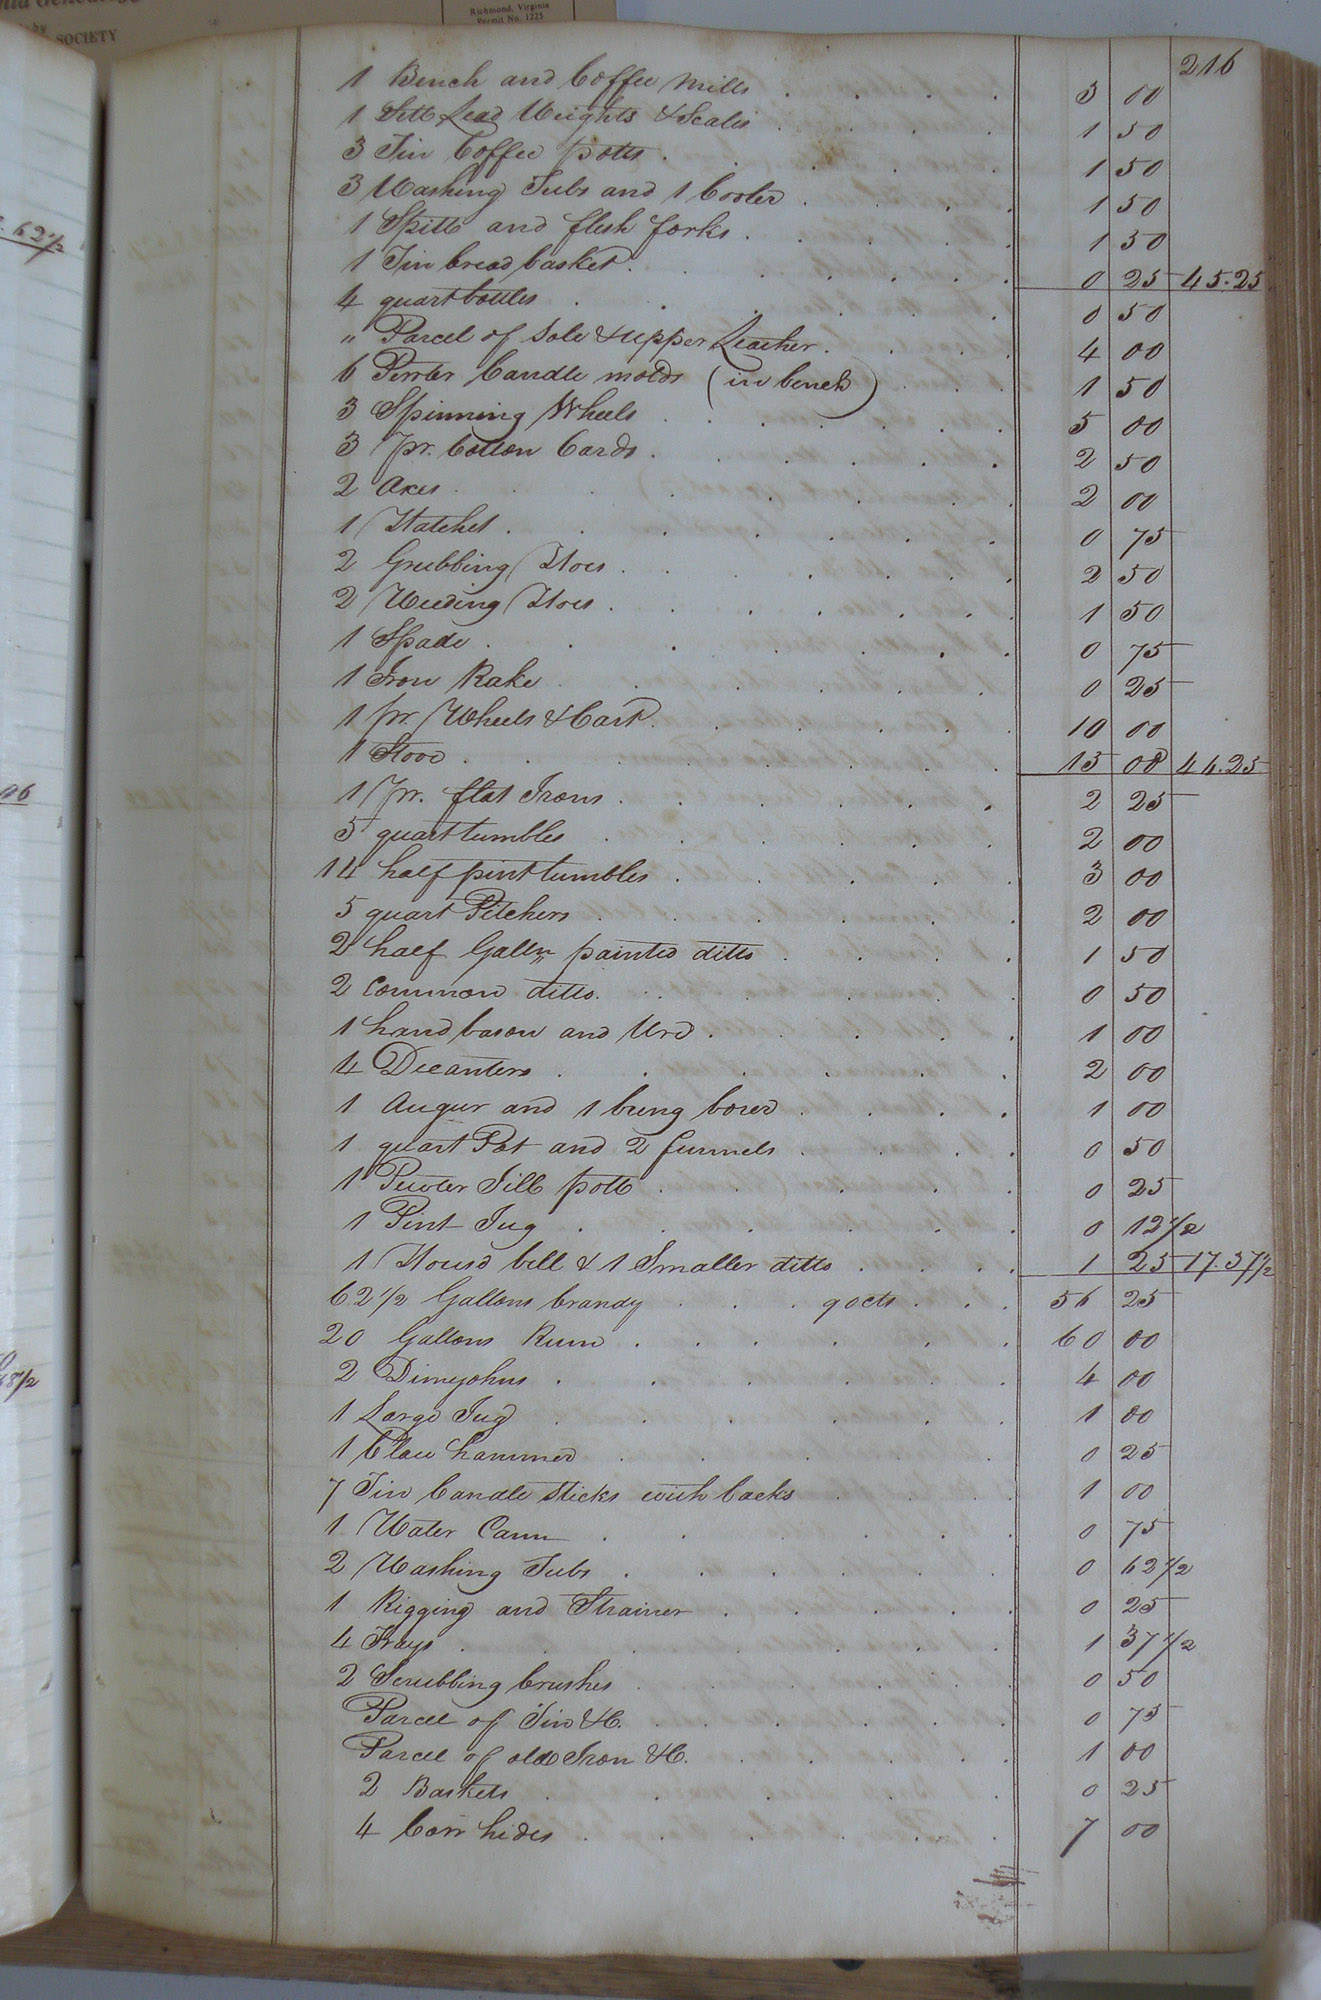 Richmond, Virginia
Permit No. 1225
SOCIETY
216
62½
1 Bench and Coffee Mills . . . . 3 00
1 Sett Lead Weights & Scales . . . . 1 50
3 Tin Coffee potts . . . . 1 50
3 Washing Tubs and 1 Cooler . . . . 1 50
1 Spitt and flesh forks . . . . 1 50
1 Tin bread basket . . . . 0 25 45.25
4 quart bottles . . . . 0 50
" Parcel of Sole & upper Leather . . . . 4 00
6 Pewter Candle molds (in bench) . . . . 1 50
3 Spinning Wheels . . . . 5 00
3 pr. Cotton Cards . . . . 2 50
2 Axes . . . . 2 00
1 Hatchet . . . . 0 75
2 Grubbing Hoes . . . . 2 50
2 Weeding Hoes . . . . 1 50
1 Spade . . . . 0 75
1 Iron Rake . . . . 0 25
1 pr. Wheels & Cart . . . . 10 00
1 Stove . . . . 15 00 46.25
1 pr. flat Irons . . . . 2 25
5 quart tumbles . . . . 2 00
14 half pint tumbles . . . . 3 00
5 quart Pitchers . . . . 2 00
2 half Galln painted ditto . . . . 1 50
2 Common ditto . . . . 0 50
1 hand bason and Urn . . . . 1 00
4 Decanters . . . . 2 00
1 Augur and 1 bung borer . . . . 1 00
1 quart Pot and 2 funnels . . . . 0 50
1 Pewter Jill pott . . . . 0 25
1 Pint Jug . . . . 0 12½
1 House bell & 1 Smaller ditto . . . . 1 25 17.37½
62½ Gallons brandy . . . 90 cts . . . 56 25
20 Gallons Rum . . . . 60 00
2 Dimyohns . . . . 4 00
1 Large Jug . . . . 1 00
1 Claw hammer . . . . 0 25
7 Tin Candle sticks with backs . . . . 1 00
1 Water Cann . . . . 0 75
2 Washing Tubs . . . . 0 62½
1 Rigging and Strainer . . . . 0 25
4 Trays . . . . 1 37½
2 Scrubbing brushes . . . . 0 50
Parcel of Tin &C. . . . . 0 75
Parcel of old Iron &C. . . . . 1 00
2 Baskets . . . . 0 25
4 Cow hides . . . . 7 00